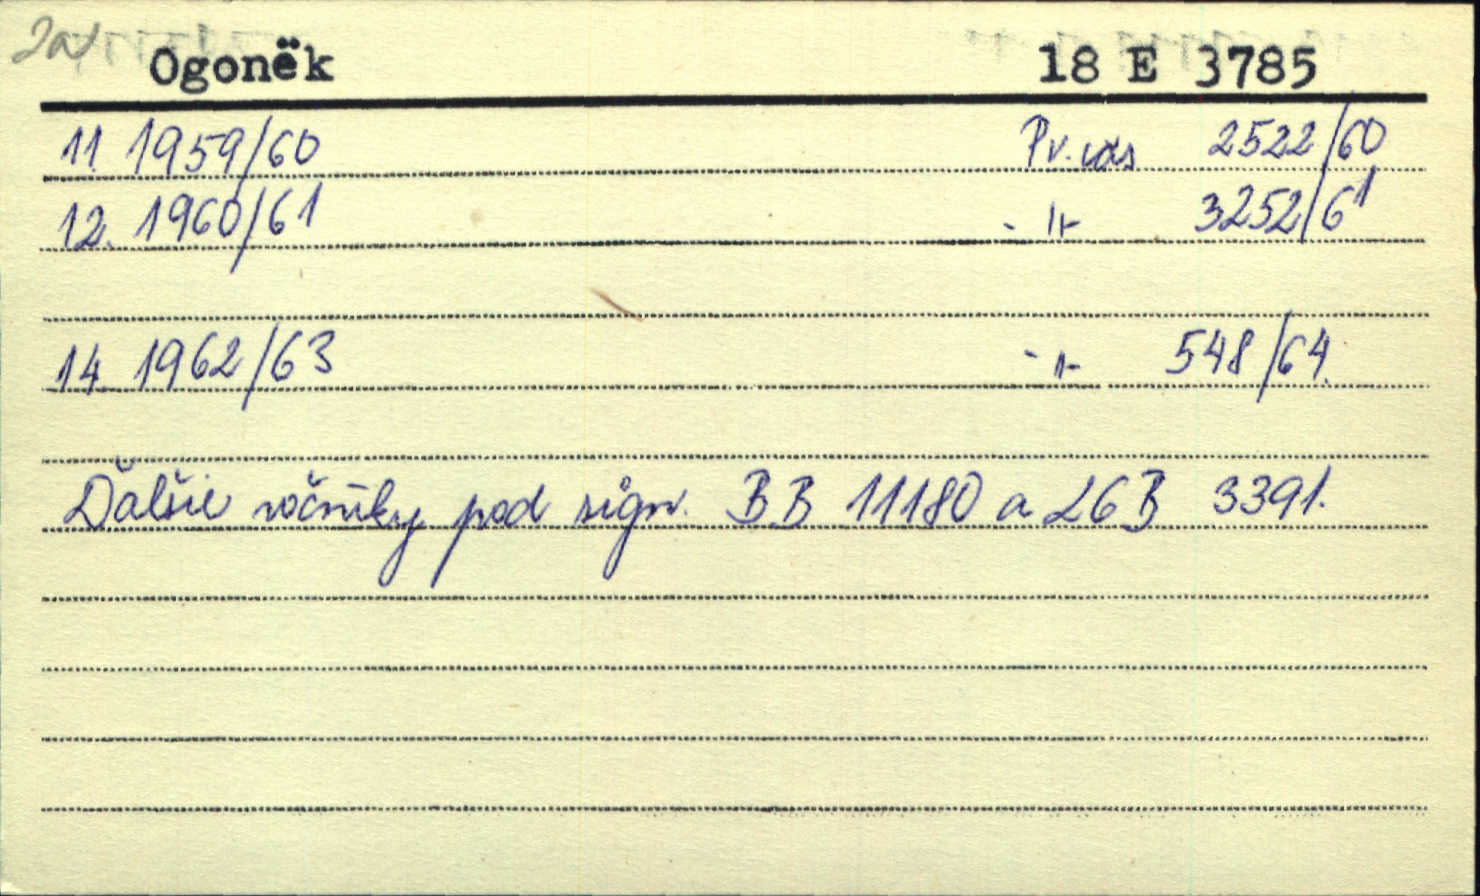 Ogonëk 18 E 3785
11. 1959/60 Pv. vás 2522/60
12. 1960/61 - " - 3252/61
14. 1962/63 - " - 548/64.
Ďalšie ročníky pod sign. BB 11180 a LGB 3391.